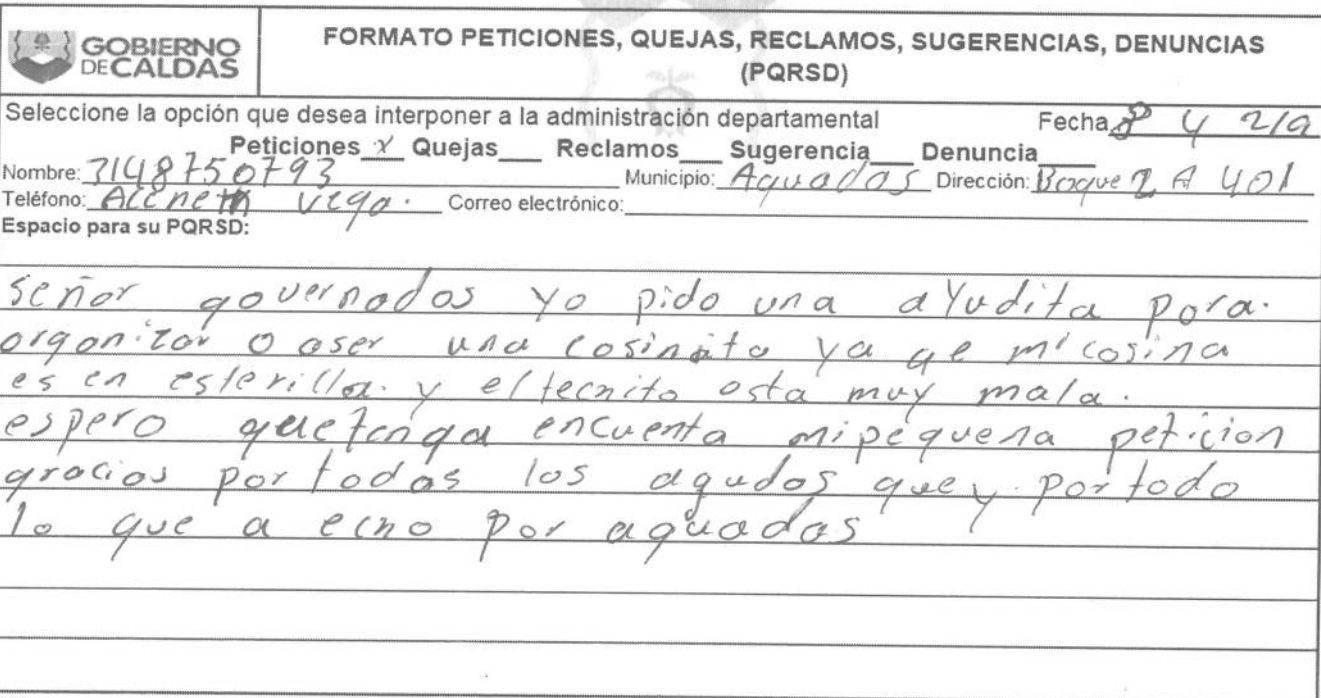 GOBIERNO
DE CALDAS
FORMATO PETICIONES, QUEJAS, RECLAMOS, SUGERENCIAS, DENUNCIAS
(PQRSD)
Seleccione la opción que desea interponer a la administración departamental Fecha 8 4 219
Peticiones x Quejas___ Reclamos___ Sugerencia___ Denuncia___
Nombre: 3148750793 Municipio: Aguadas Dirección: Boque 2 A 401
Teléfono: Vega. Correo electrónico:
Espacio para su PQRSD:
señor governados yo pido una ayudita para.
organizar o aser una cosinita ya qe mi cosina
es en esterilla. y el tecnito osta muy mala.
espero que tenga encuenta mi pequena peticion
gracias por todas los agudos que y. por todo
lo que a ecno por aguadas